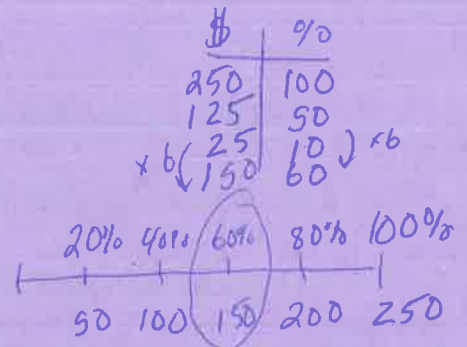 $ %
250 100
125 50
25 10
x 6 150 60 x6
20% 40% 60% 80% 100%
50 100 150 200 250